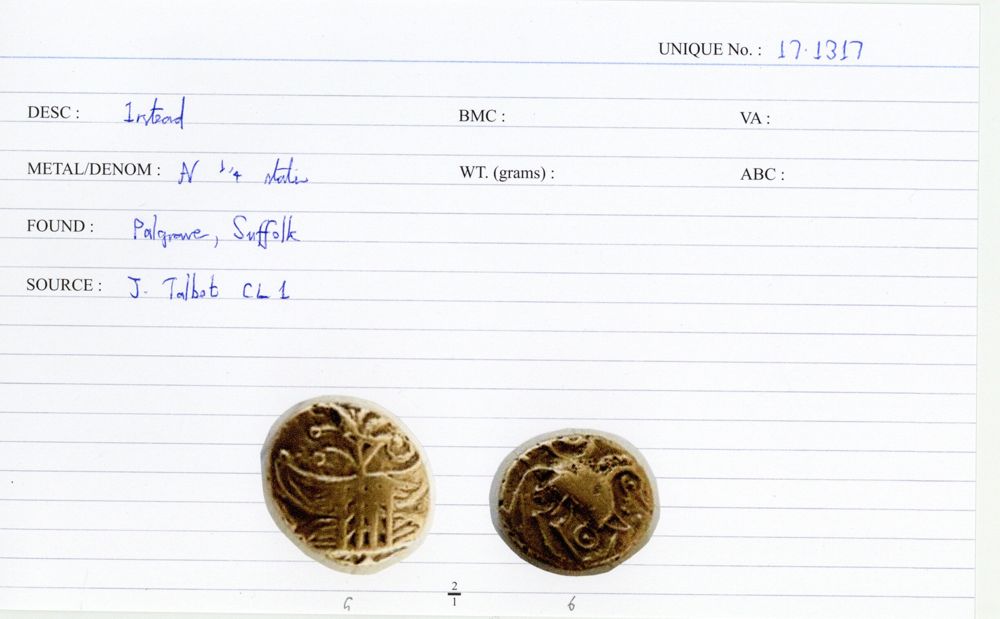 UNIQUE No. : 17.1317
DESC : Irstead BMC : VA :
METAL/DENOM : N 1/4 stater WT. (grams) : ABC :
FOUND : Palgrave, Suffolk
SOURCE : J. Talbot CL 1
2
1
6